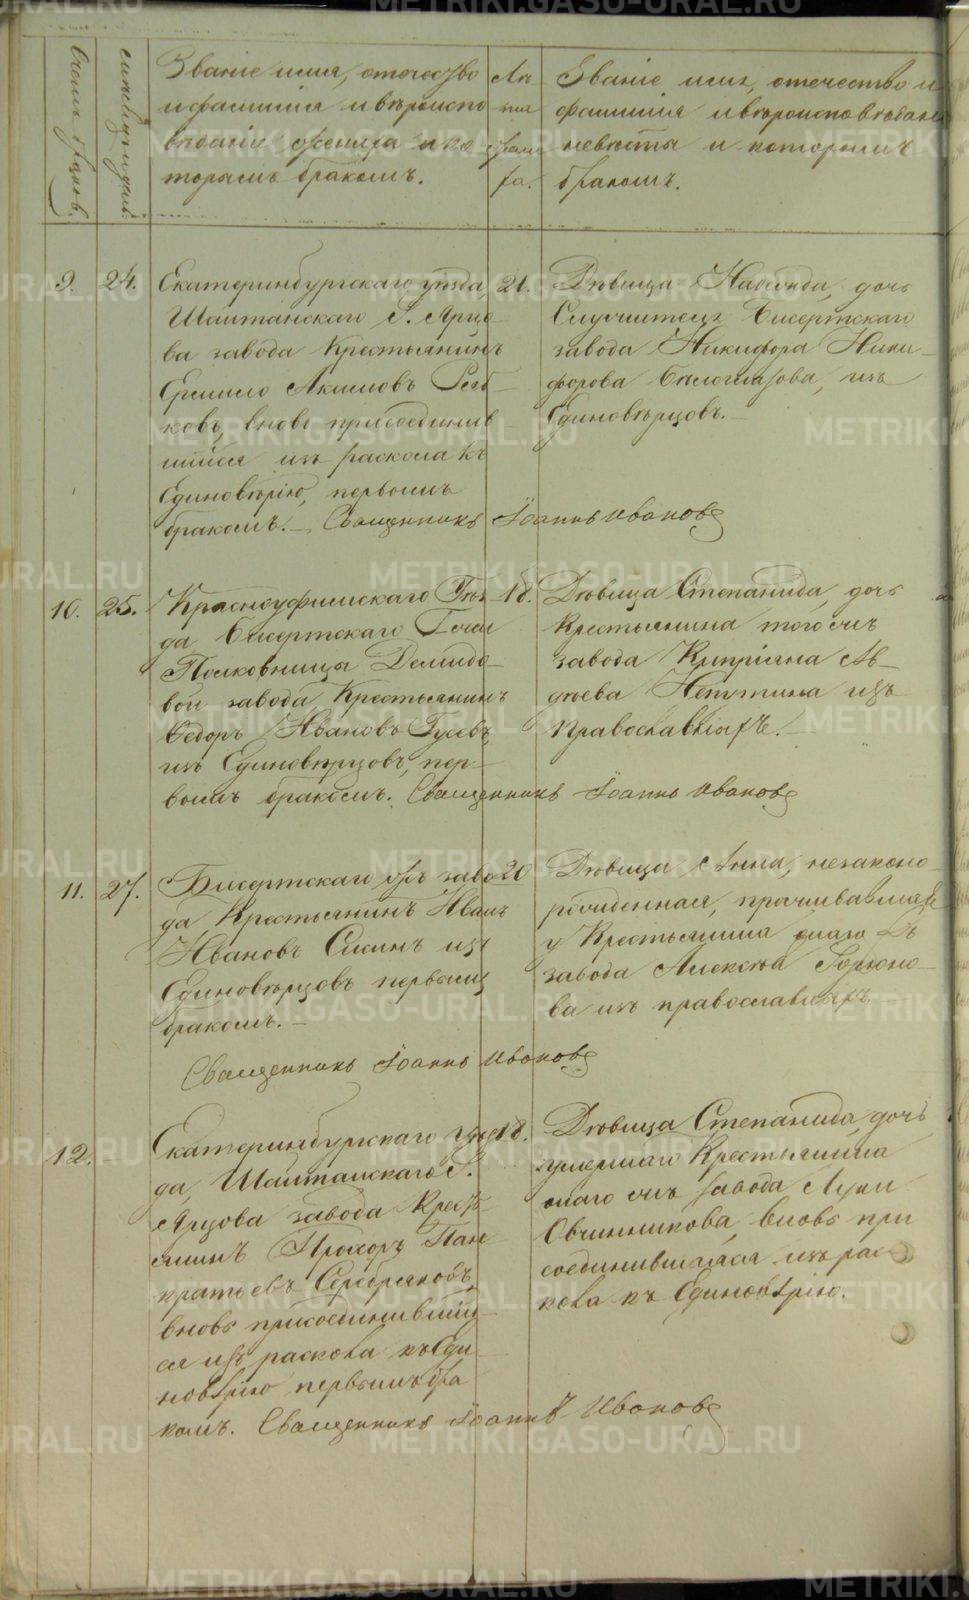 Счетъ браковъ.
Мѣсяцъ и день.
Званіе имя, отечество
и фамилія и вѣроиспо
вѣданіе жениха и ко
торымъ бракомъ.
Лѣ
та
жени
ха.
Званіе имя, отечество и
фамилія и вѣроисповѣдані
невѣсты и которымъ
бракомъ.
9.
24.
Екатеринбургскаго уѣзда,
Шайтанскаго Г. Ярцо
ва завода Крестьянинъ
Ермило Акимовъ
ковъ, вновь присоединив
шійся изъ раскола къ
Единовѣрію, первымъ
бракомъ. Священникъ Іоаннъ Ивановъ
21.
Дѣвица Надежда, дочь
Служителя Бисертскаго
завода Никифора Ники-
форова Бѣлоглазова, изъ
Единовѣрцовъ.
10.
25.
Красноуфимскаго Уѣз
да Бисертскаго Г-жи
Полковницы Демидо-
вой завода Крестьянинъ
Ѳедоръ Ивановъ Гусевъ,
изъ Единовѣрцовъ, пер-
вымъ бракомъ. Священникъ Іоаннъ Ивановъ
18.
Дѣвица Степанида, дочь
Крестьянина того жъ
завода Кипріяна Ав-
дѣева Непутина изъ
Православныхъ.
11.
27.
Бисертскаго заво
да Крестьянинъ Иванъ
Ивановъ Сысинъ изъ
Единовѣрцовъ первымъ
бракомъ.
Священникъ Іоаннъ Ивановъ
20
Дѣвица Анна, незаконо-
рожденная, проживавшая
у Крестьянина онаго жъ
завода Алексѣя Горюно-
ва изъ православныхъ
12.
Екатеринбургскаго уѣз
да, Шайтанскаго Г.
Ярцова завода Крестъ-
янинъ Прохоръ Пан
кратьевъ Серебряковъ,
вновь присоединившій
ся изъ раскола къ Еди
новѣрію первымъ бра
комъ. Священникъ Іоаннъ Ивановъ
18.
Дѣвица Степанида, дочь
умершаго Крестьянина
онаго жъ завода Луки
Овчинникова, вновь при
соединившаяся изъ рас-
кола къ Единовѣрію.
METRIKI.GASO-URAL.RU